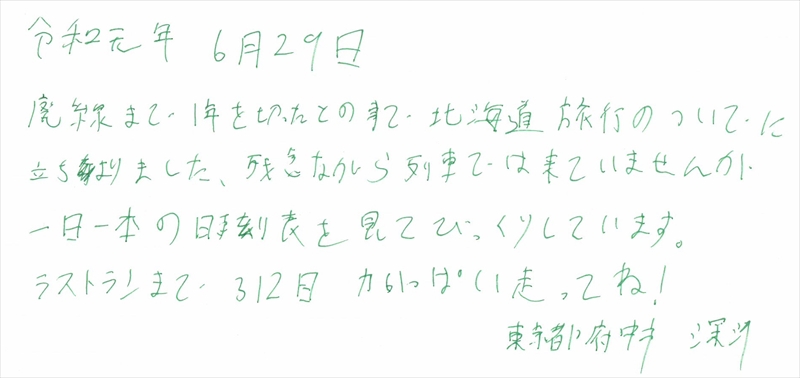 令和元年 6月29日
廃線まで1年を切ったとの事で北海道旅行のついでに
立ち寄りました、残念ながら列車では来ていませんが
一日一本の時刻表を見てびっくりしています。
ラストランまで312日 力いっぱい走ってね!
東京都府中市 深沢